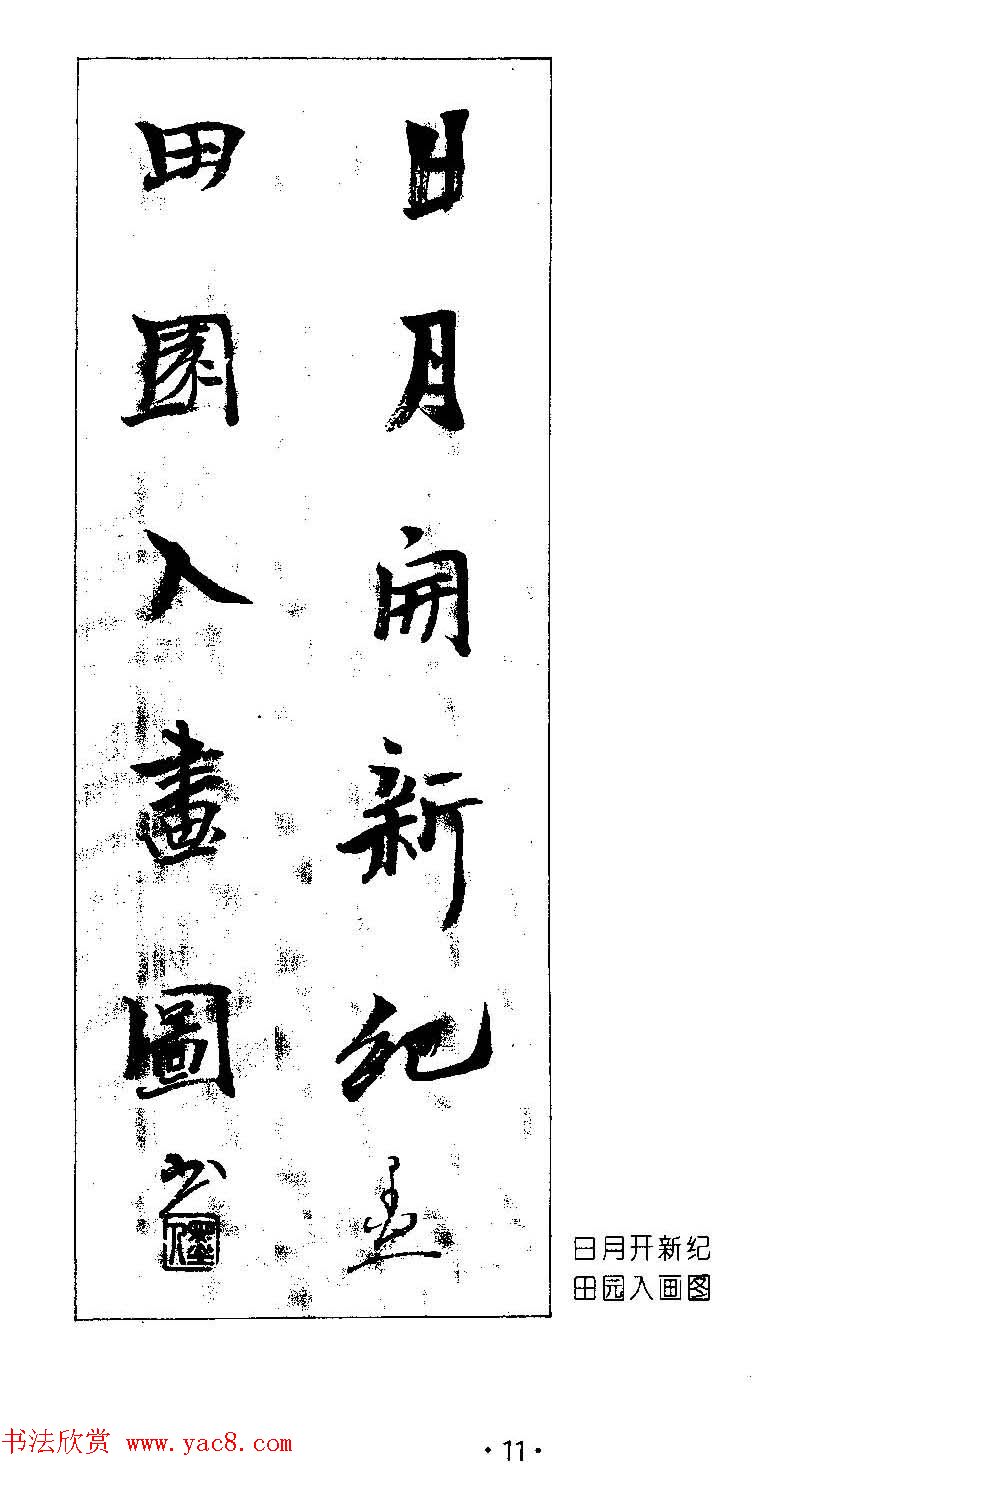 日月開新紀
田園入畫圖
日月开新纪
田园入画图
书法欣赏 www.yac8.com
·11·